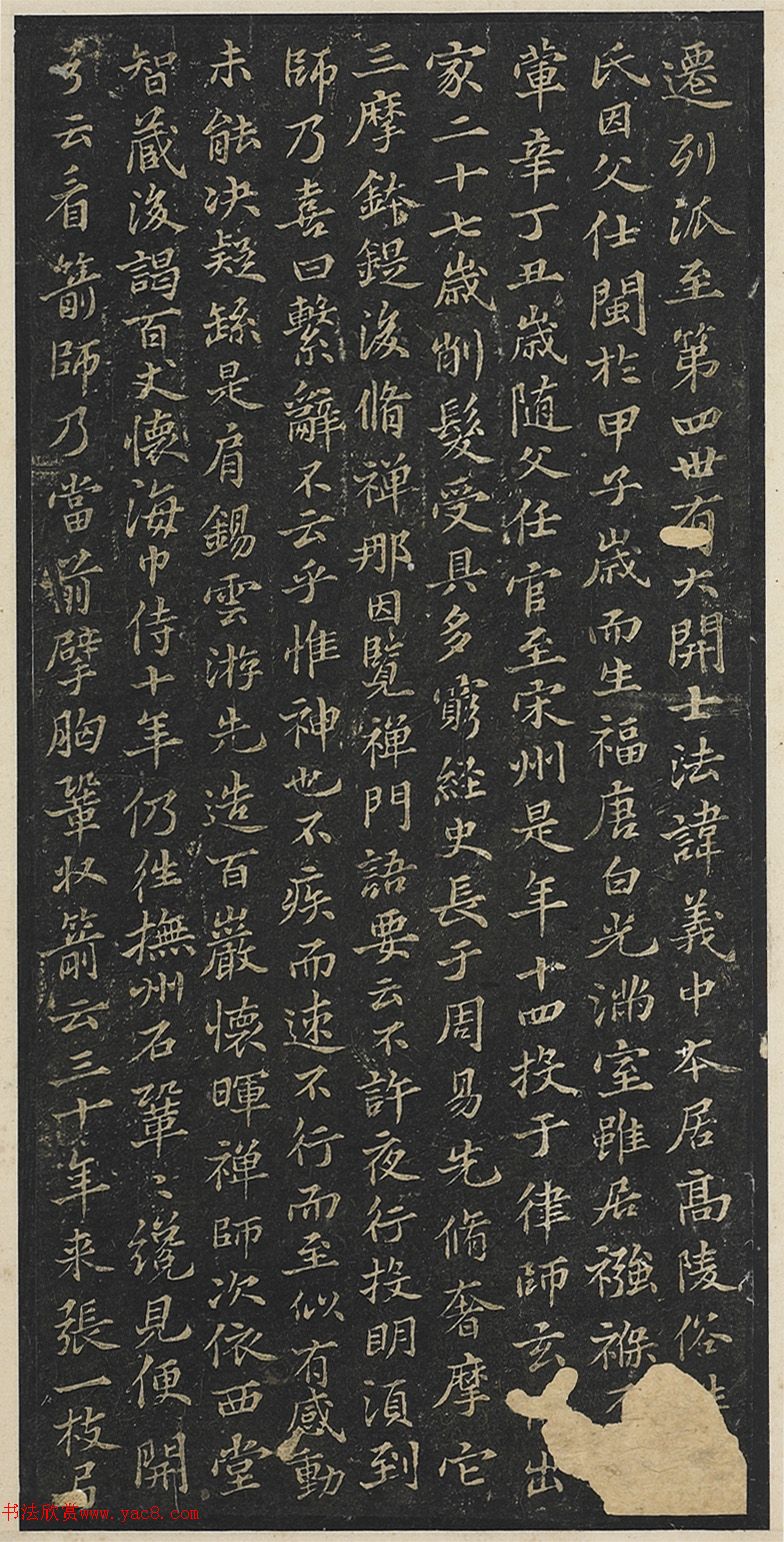 遷列派至第四世有大開士法諱義中本居高陵俗
氏因父仕閩於甲子歲而生福唐白光滿室雖居襁褓
葷辛丁丑歲随父任官至宋州是年十四投于律師玄出
家二十七歲削髮受具多窮經史長于周易先脩奢摩它
三摩鉢鍉後脩禅那因覽禅門語要云不許夜行投明須到
師乃喜曰繫辭不云乎惟神也不疾而速不行而至似有感動
未能决疑繇是肩錫雲游先造百巖懷暉禅師次依西堂
智蔵後謁百丈懷海巾侍十年仍往撫州石鞏〻纔見便開
弓云看箭師乃當前擘胸鞏収箭云三十年来張一枝弓
书法欣赏www.yac8.com